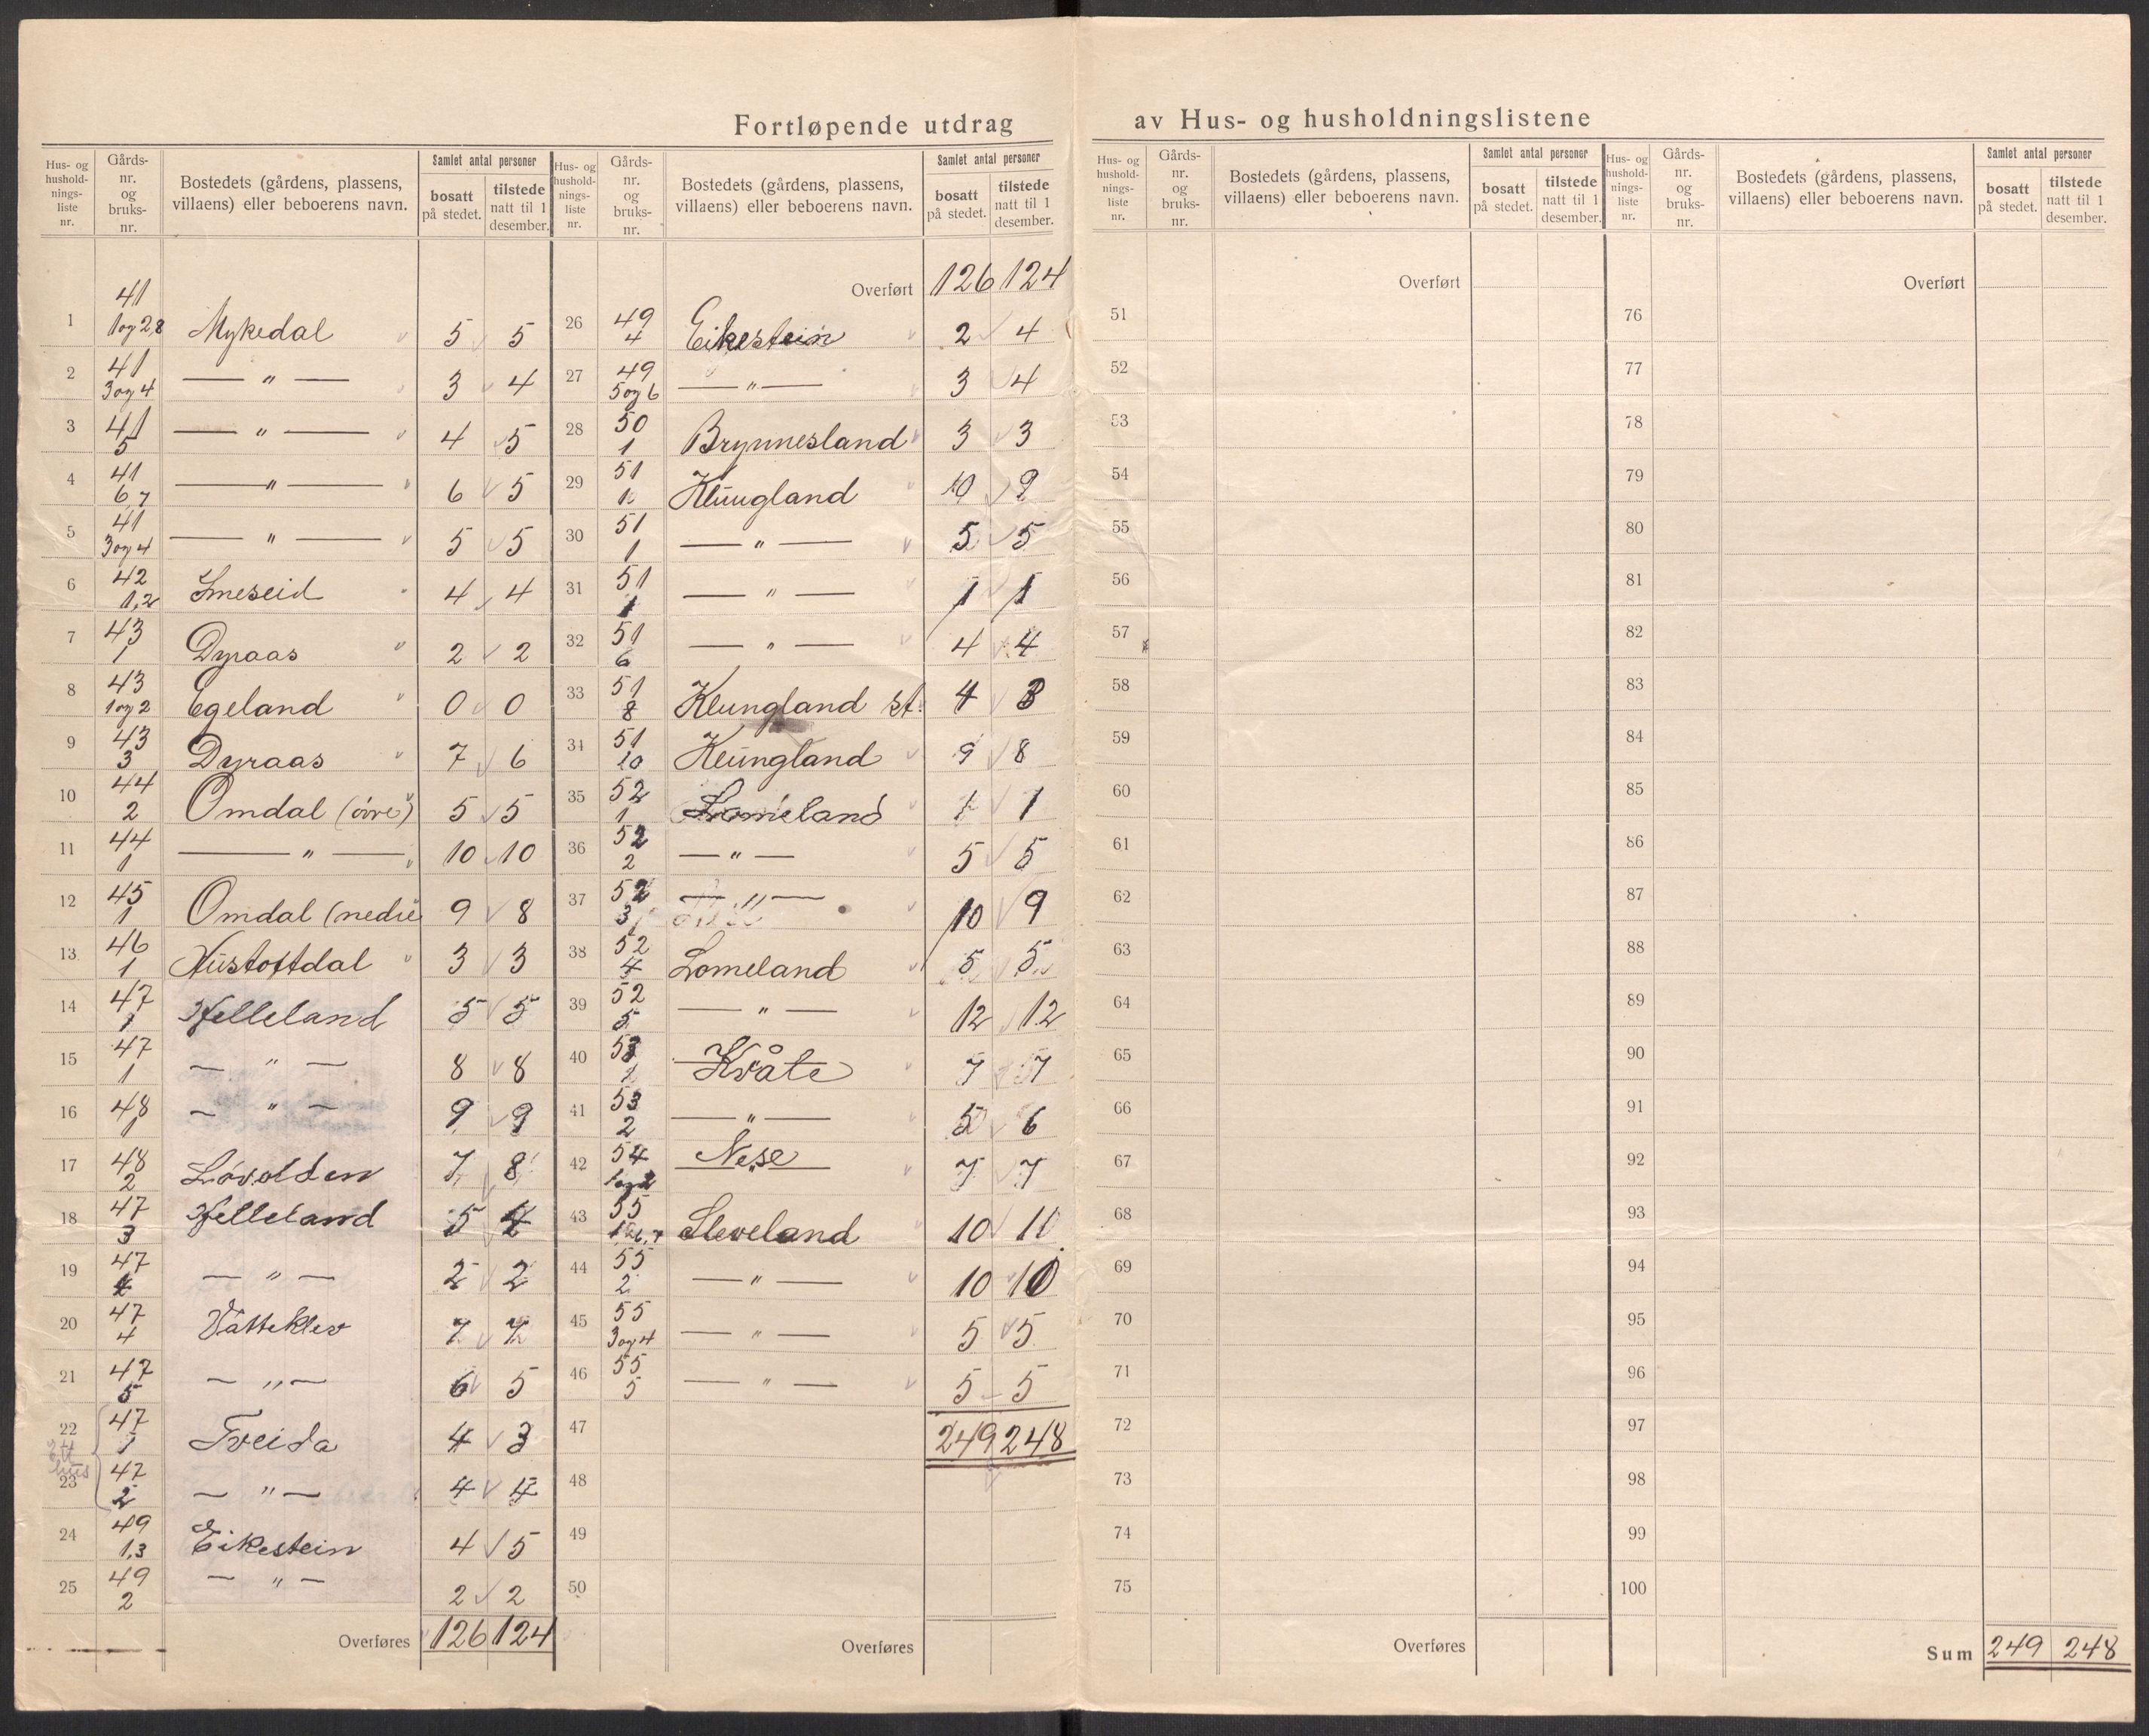 Fortløpende utdrag av Hus- og husholdningslistene
Hus- og husholdnings-liste nr. Gårds-nr. og bruks-nr. Bostedets (gårdens, plassens, villaens) eller beboerens navn. Samlet antal personer bosatt på stedet. tilstede natt til 1 desember.
1 41 1og2,8 Mykedal 5 5
2 41 3og4 — " — 3 4
3 41 5 — " — 4 5
4 41 6,7 — " — 6 5
5 41 3og4 — " — 5 5
6 42 1,2 Imeseid 4 4
7 43 1 Dyraas 2 2
8 43 1og2 Egeland 0 0
9 43 3 Dyraas 7 6
10 44 2 Omdal (övre) 5 5
11 44 1 — " — 10 10
12 45 1 Omdal (nedre 9 8
13 46 1 Hustoftdal 3 3
14 47 1 Helleland 5 5
15 47 1 — " — 8 8
16 48 1 — " — 9 9
17 48 2 Lövolden 7 8
18 47 3 Helleland 5 4
19 47 4 — " — 2 2
20 47 4 Vatteklev 7 7
21 47 5 — " — 6 5
Ett hus
22 47 1 Tveida 4 3
23 47 2 — " — 4 4
24 49 1,3 Eikestein 4 5
25 49 2 — " — 2 2
Overføres 126 124
Hus- og husholdnings-liste nr. Gårds-nr. og bruks-nr. Bostedets (gårdens, plassens, villaens) eller beboerens navn. Samlet antal personer bosatt på stedet. tilstede natt til 1 desember.
Overført 126 124
26 49 4 Eikestein 2 4
27 49 5og6 — " — 3 4
28 50 1 Brynnesland 3 3
29 51 1 Klungland 10 9
30 51 1 — " — 5 5
31 51 1 — " — 1 1
32 51 6 — " — 4 4
33 51 8 Klungland st. 4 3
34 51 10 Klungland 9 8
35 52 1 Lomeland 1 1
36 52 2 — " — 5 5
37 52 3 — " — 10 9
38 52 4 Lomeland 5 5
39 52 5 — " — 12 12
40 53 1 Kvåle 7 7
41 53 2 — " — 5 6
42 54 1og2 Nese 7 7
43 55 Sleveland 10 10
44 55 2 — " — 10 10
45 55 3og4 — " — 5 5
46 55 5 — " — 5 5
47 249 248
48
49
50
Overføres
Hus- og husholdnings-liste nr. Gårds-nr. og bruks-nr. Bostedets (gårdens, plassens, villaens) eller beboerens navn. Samlet antal personer bosatt på stedet. tilstede natt til 1 desember.
Overført
51
52
53
54
55
56
57
58
59
60
61
62
63
64
65
66
67
68
69
70
71
72
73
74
75
Overføres
Hus- og husholdnings-liste nr. Gårds-nr. og bruks-nr. Bostedets (gårdens, plassens, villaens) eller beboerens navn. Samlet antal personer bosatt på stedet. tilstede natt til 1 desember.
Overført
76
77
78
79
80
81
82
83
84
85
86
87
88
89
90
91
92
93
94
95
96
97
98
99
100
Sum 249 248